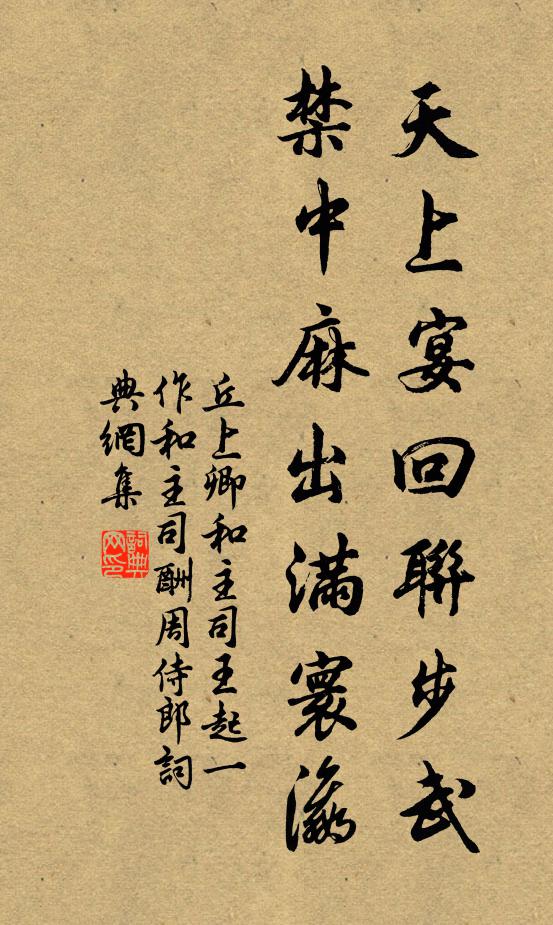 天上宴回聯步武
禁中麻出滿寰瀛
丘上卿和主司王起一
作和主司酬周侍郎詞
典網集
詞典
网印